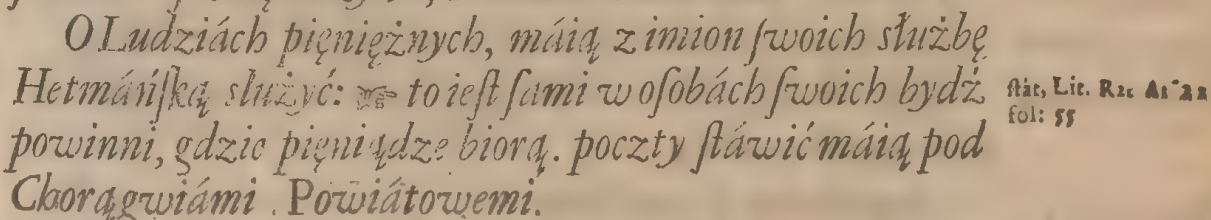 O Ludziách pięniężnych, máią z imion ſwoich służbę
Hetmáńſką służyć: ☞ to ieſt ſami w oſobách ſwoich bydź
powinni, gdzie pięniądze biorą. poczty ſtáwić máią pod
Chorągwiámi . Powiátowemi.
ſtát, Lit. Rzc
fol: 55